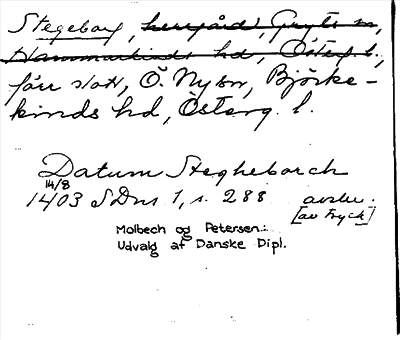 Stegeborg, herrgård, Gryts sn,
Hammarkinds hd, Österg. l.,
förr slott, Ö. Ny sn, Björke-
kinds hd, Österg. l.
Datum Stegheborch
14/8
1403 SDns 1, s. 288 avskr.
[av tryck]
Molbech og Petersen:
Udvalg af Danske Dipl.